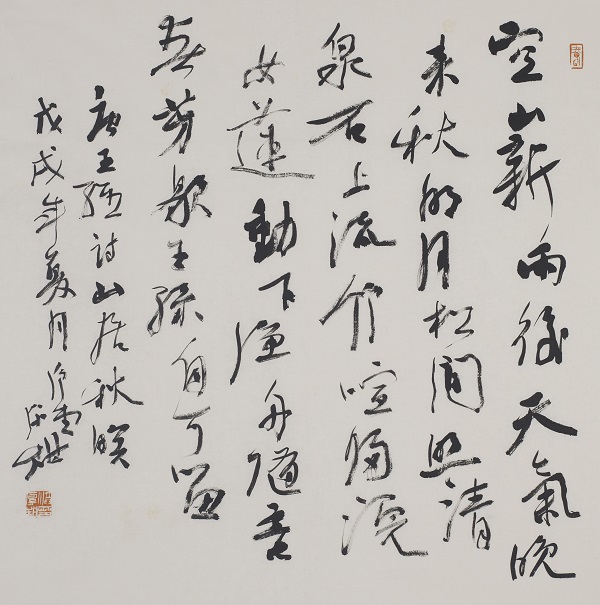 空山新雨後天氣晚
来秋明月松間照清
泉石上流竹喧歸浣
女蓮動下漁舟隨意
春芳歇王孫自可留
唐王維詩山居秋暝
戊戌年夏月